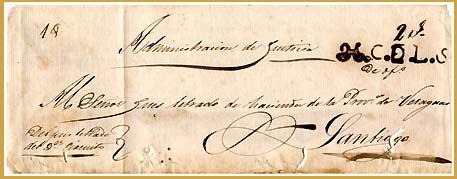 18
2 rs
Administracion de Justicia
H.C.D.L.S
De ofo
Al Señor Jues letrado de hacienda de la Prova de Veraguas
Del Jues letrado
del 2do Circuito
Santiago